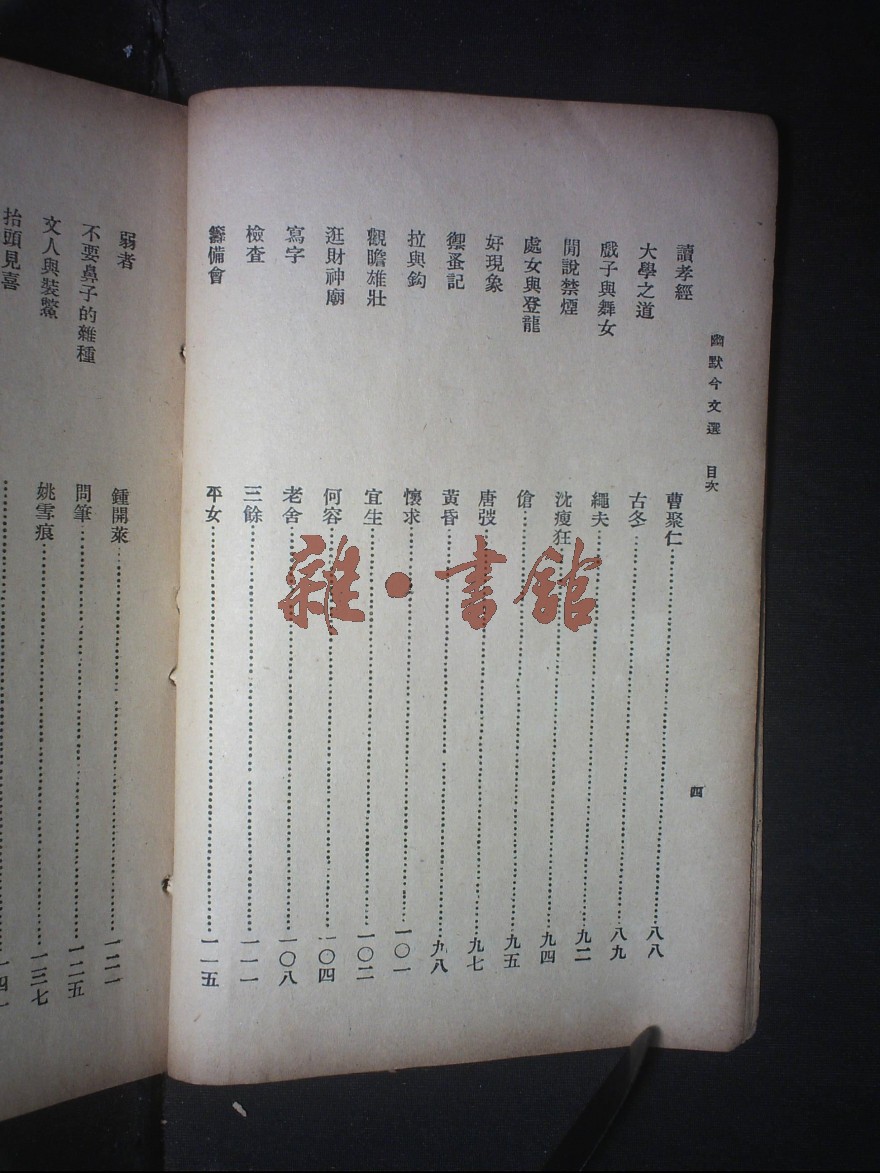 幽默今文選 目次 四
讀孝經 曹聚仁 八八
大學之道 古冬 八九
戲子與舞女 繩夫 九二
閒說禁煙 沈瘦狂 九四
處女與登龍 傖 九五
好現象 唐弢 九七
禦蚤記 黃昏 九八
拉與鈎 懷求 一〇一
觀瞻雄壯 宜生 一〇二
逛財神廟 何容 一〇四
寫字 老舍 一〇八
檢查 三餘 一一一
籌備會 平女 一一五
弱者 鍾開萊 一二一
不要鼻子的雜種 問筆 一二五
文人與裝鱉 姚雪痕 一三七
抬頭見喜
雜·書館